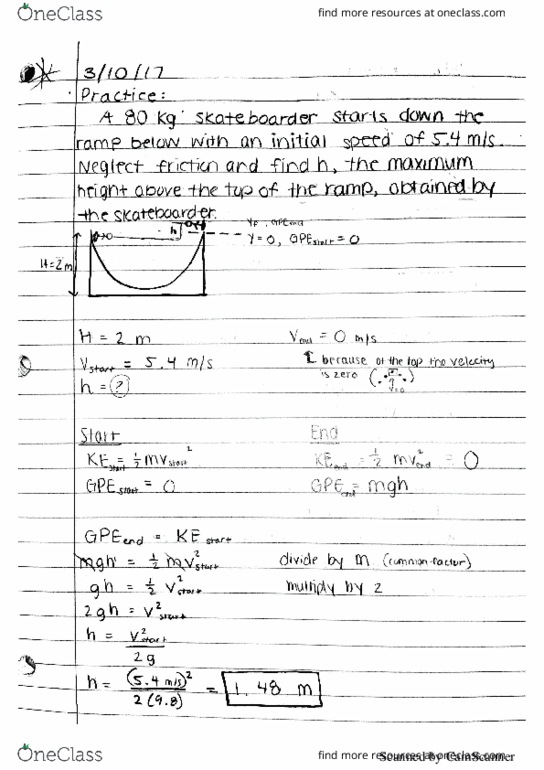 OneClass
find more resources at oneclass.com
3/10/17
Practice:
A 80 kg skateboarder starts down the
ramp below with an initial speed of 5.4 m/s.
Neglect friction and find h, the maximum
height above the top of the ramp, obtained by
the skateboarder.
h
Y=0, GPE start = 0
H=2m
H = 2 m
V end = 0 m/s
V start = 5.4 m/s
because at the top the velocity
is zero
h = ?
Start
End
KE start = 1/2 mv start ²
KE end = 1/2 mv² end = 0
GPE start = 0
GPE end = mgh
GPE end = KE start
mgh = 1/2 mv² start
divide by m (common factor)
gh = 1/2 v² start
multiply by 2
2gh = v² start
h = v² start
2g
h = (5.4 m/s)² = 1.48 m
2(9.8)
OneClass
find more resources at oneclass.com
Scanned by CamScanner